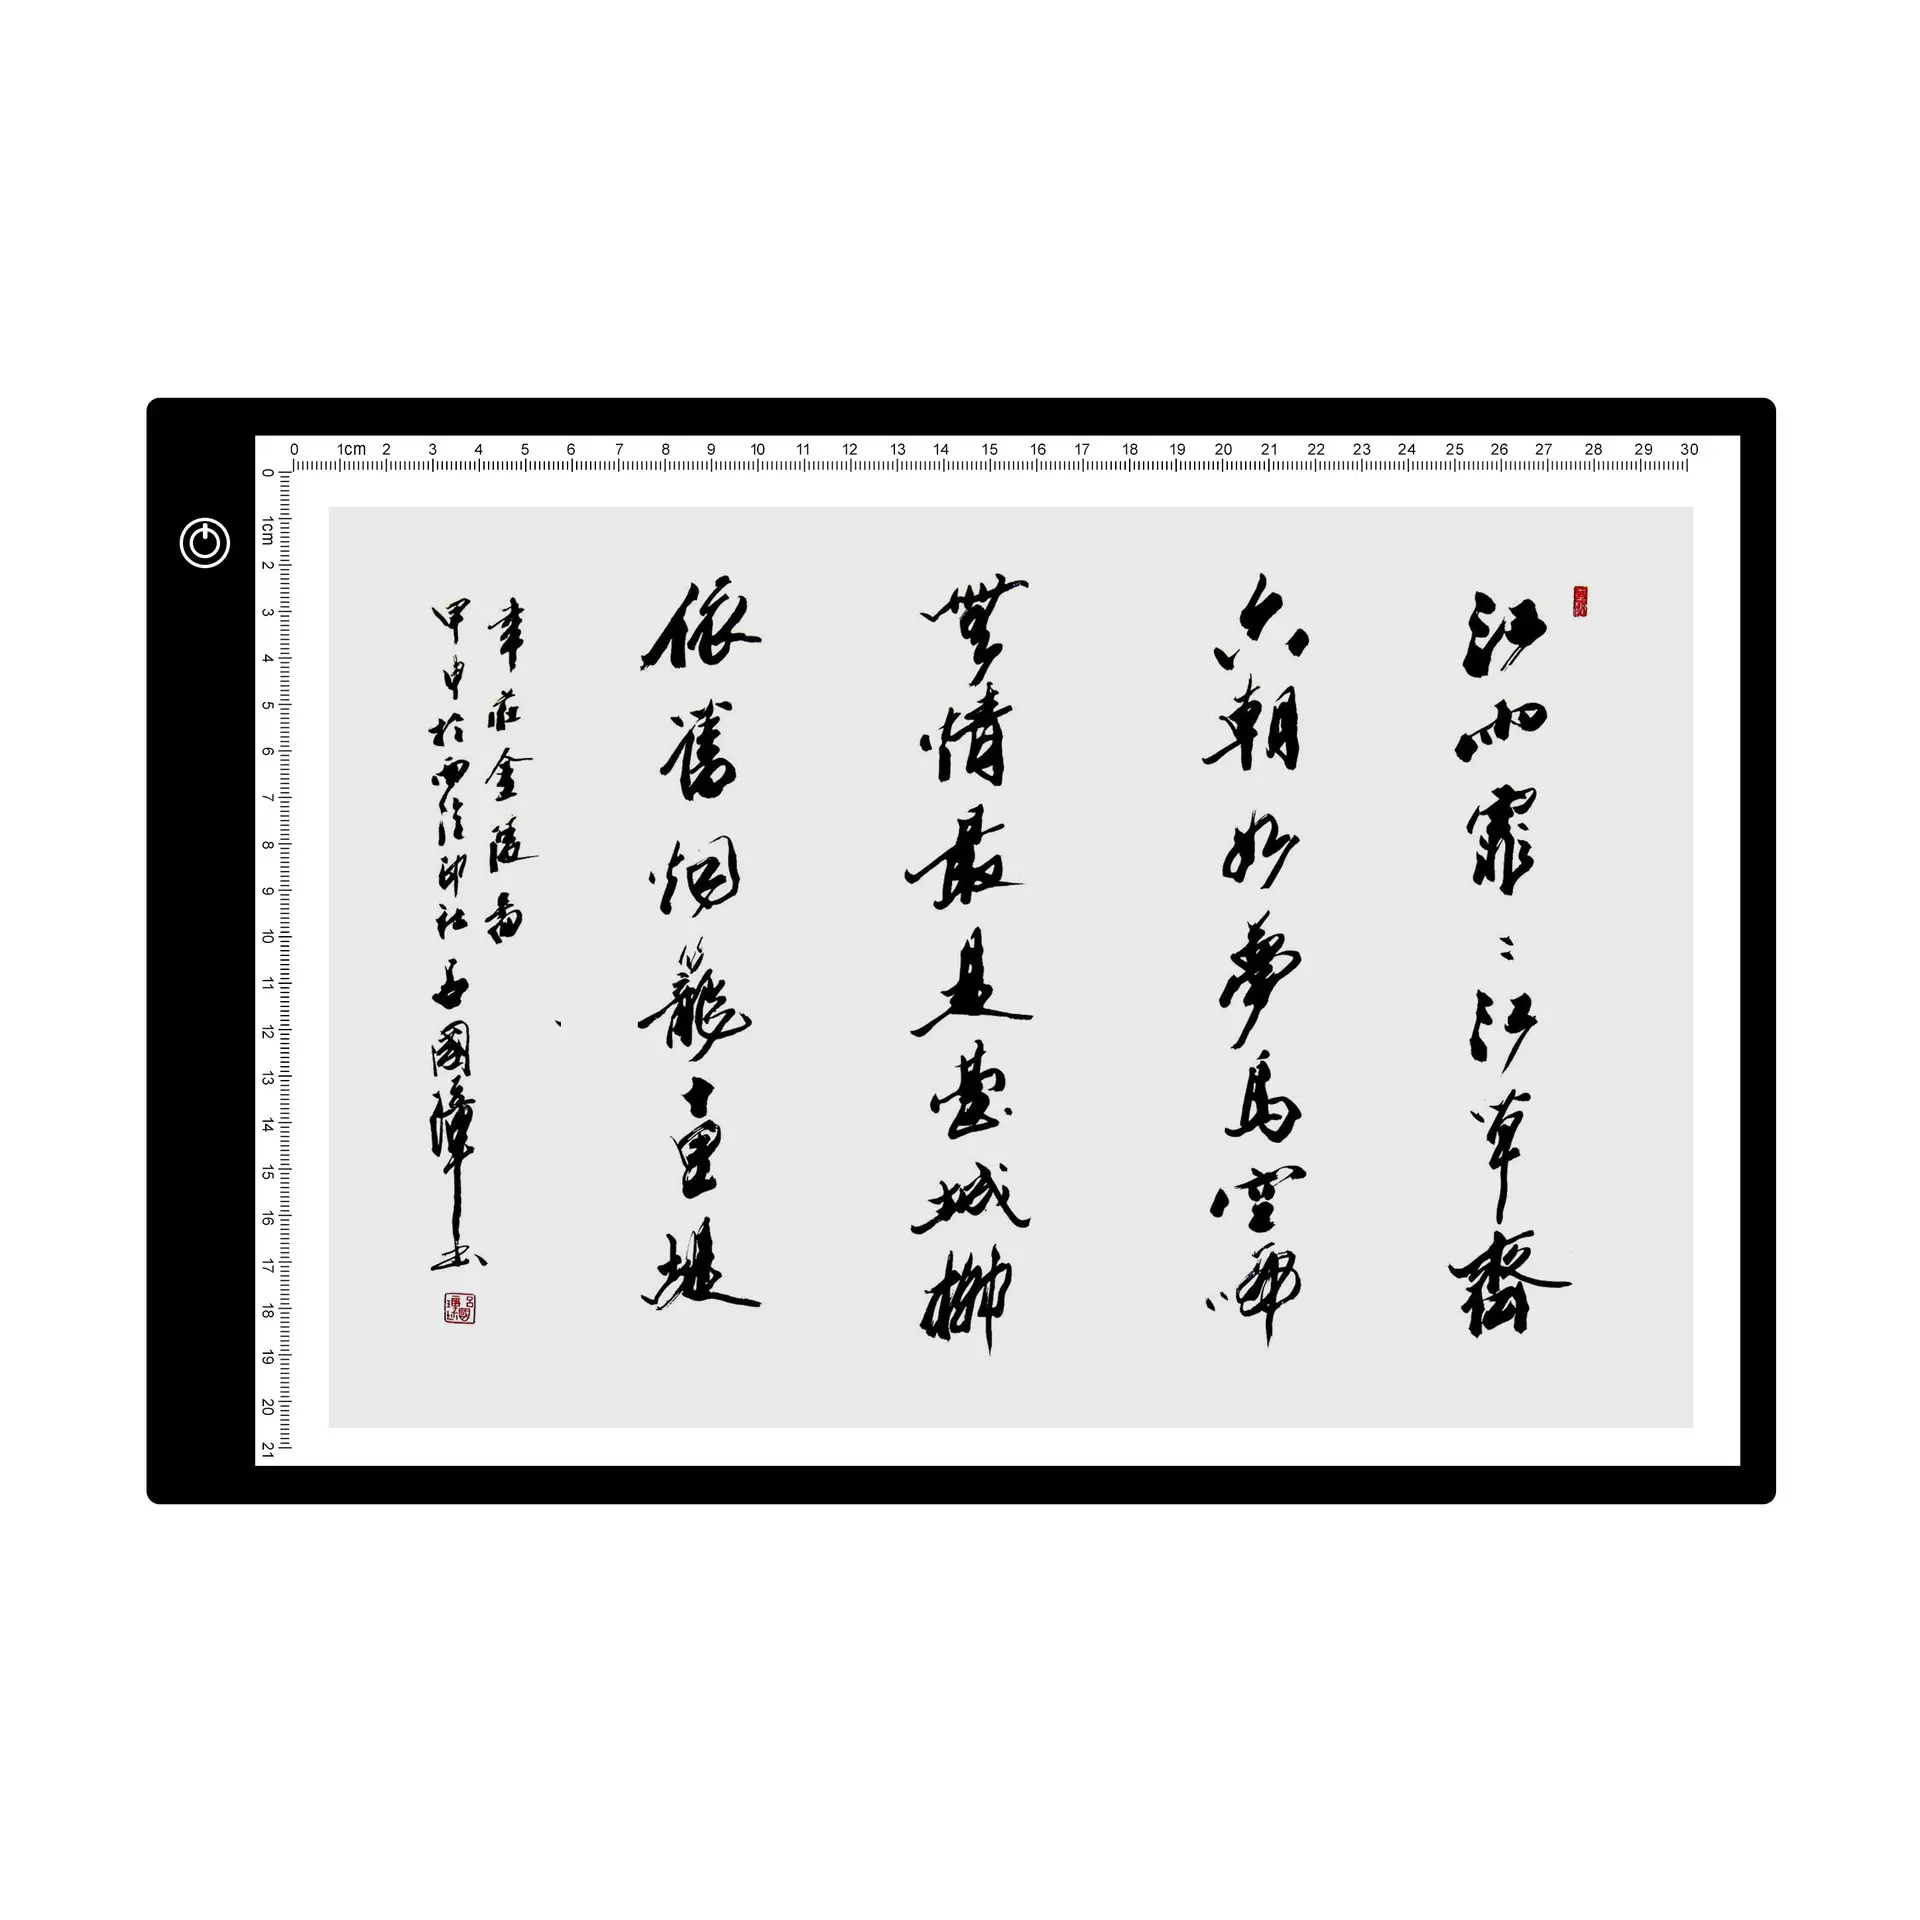 0 1cm 2 3 4 5 6 7 8 9 10 11 12 13 14 15 16 17 18 19 20 21 22 23 24 25 26 27 28 29 30
0 1cm 2 3 4 5 6 7 8 9 10 11 12 13 14 15 16 17 18 19 20 21
江雨霏〻江草齊
六朝如夢鳥空啼
無情最是臺城柳
依舊烟籠十里堤
韋莊金陵啚
甲申於西泠印社呂國璋書